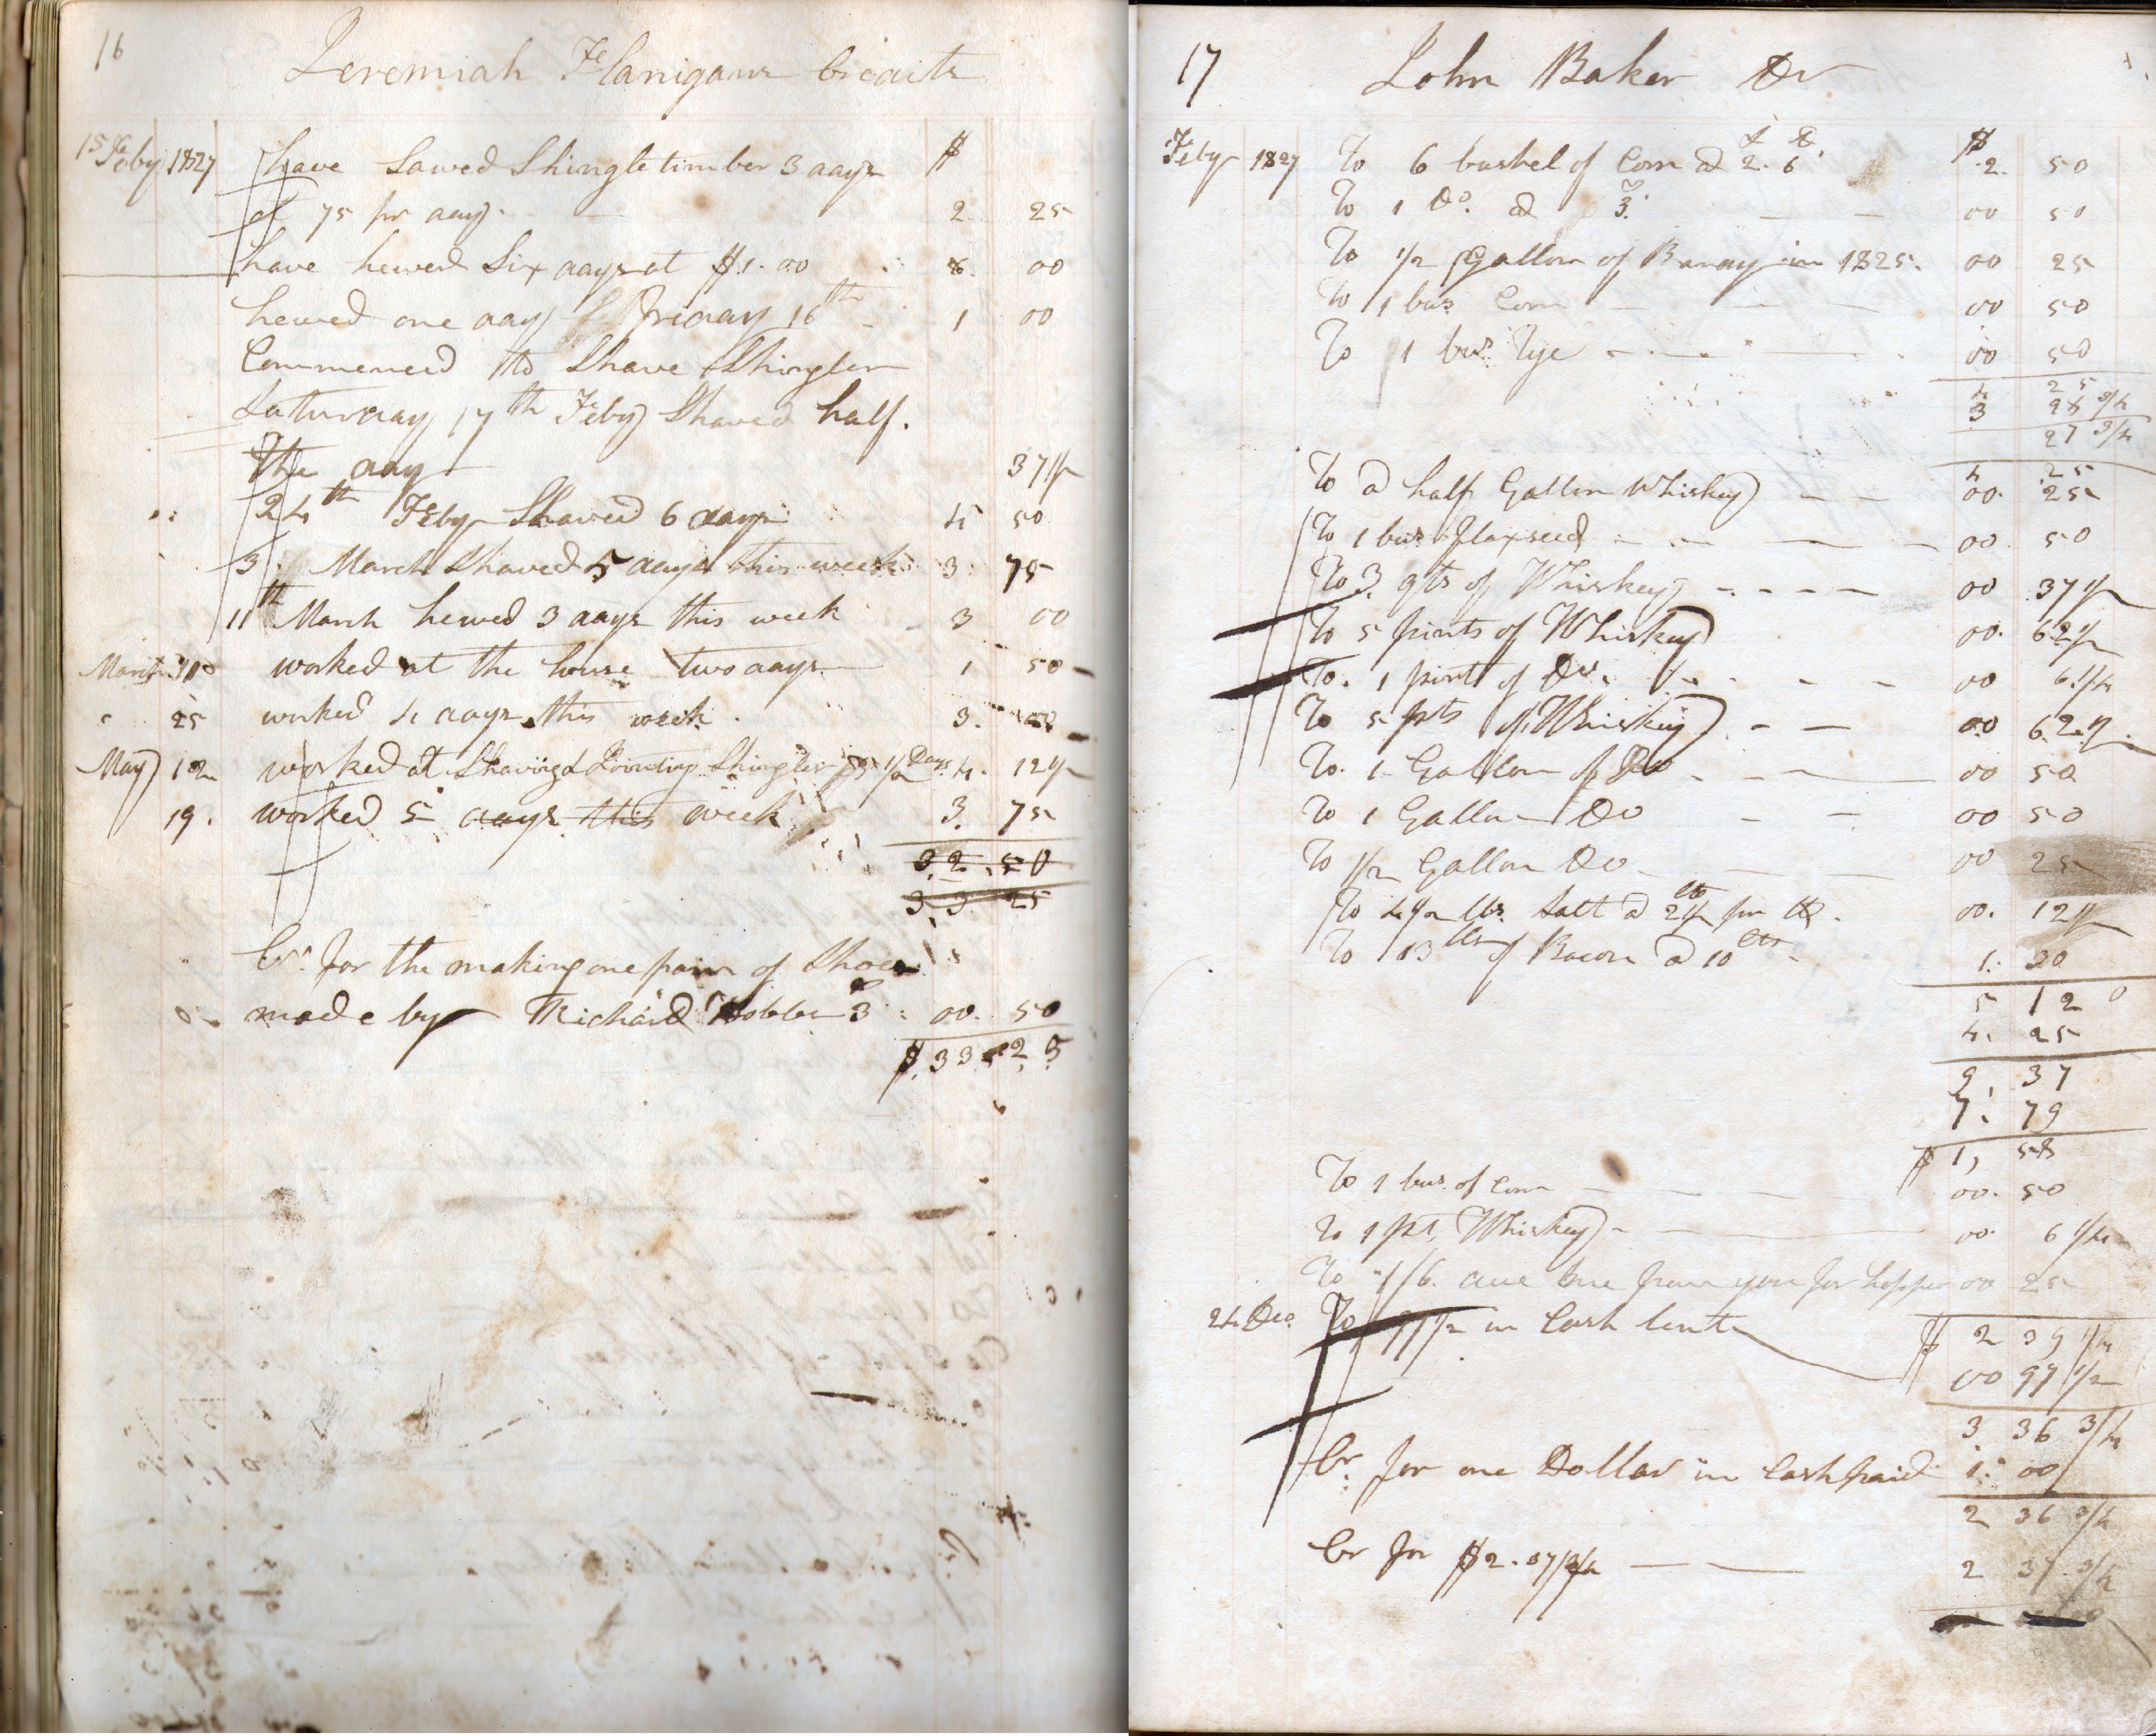 16
Jeremiah Flanigans Credits
15 Feby 1827 have Sawed Shingle timber 3 days $
at 75 pr day. 2 25
have hewed Six days at $1.00 6. 00
hewed one day Friday 16th 1 00
Commenced to Shave Shingles
Saturday 17th Feby Shaved half.
the day 37 1/2
24th Feby Shaved 6 days 4 50
3 March Shaved 5 days this week 3 75
11th March hewed 3 days this week 3 00
March 18 worked at the house two days 1 50
" 25 worked 4 days this week. 3. 00
May 12 worked at Shaving & Jointing Shingles 5 1/2 Days 4. 12 1/2
19. worked 5 days this week 3. 75
32.50
33 25
Cr. for the making one pair of Shoes
made by Richard Hobbs 3 00. 50
$33.25
17 John Baker Dr
Feby 1827 To 6 bushel of Corn @ 2. 6 $ 2. 50
To 1 Do. @ 3. 00 50
To 1/2 Gallon of Brandy in 1825. 00 25
To 1 bus. Corn 00 50
To 1 bus. Rye 00 50
4 25
3 98 3/4
27 3/4
4 25
To a half Gallon Whiskey 00. 25
To 1 bus. flaxseed 00 50
To 3 qts of Whiskey 00 37 1/2
To 5 pints of Whiskey 00. 62 1/2
To. 1 pint of Do. 00 6 1/4
To 5 pts of Whiskey 00 62 1/2
To. 1 Gallon of Do 00 50
To 1 Gallon Do 00 50
To 1/2 Gallon Do 00 25
To 4 1/2 lbs. Salt @ 2 1/2 cts pr lb. 00. 12 1/2
To 13 lbs of Bacon @ 10 cts 1. 30
5 12 0
4. 25
9, 37
7. 79
$ 1, 58
To 1 bus. of Corn 00. 50
To 1 pt, Whiskey 00. 6 1/4
To 1/6. due me from you for hopper 00 25
$ 2 39 1/4
24 Dec. To 97 1/2 in Cash lent 00 97 1/2
3 36 3/4
Cr. for one Dollar in Cash paid 1. 00
2 36 3/4
Cr for $2.37 3/4 2 37 3/4